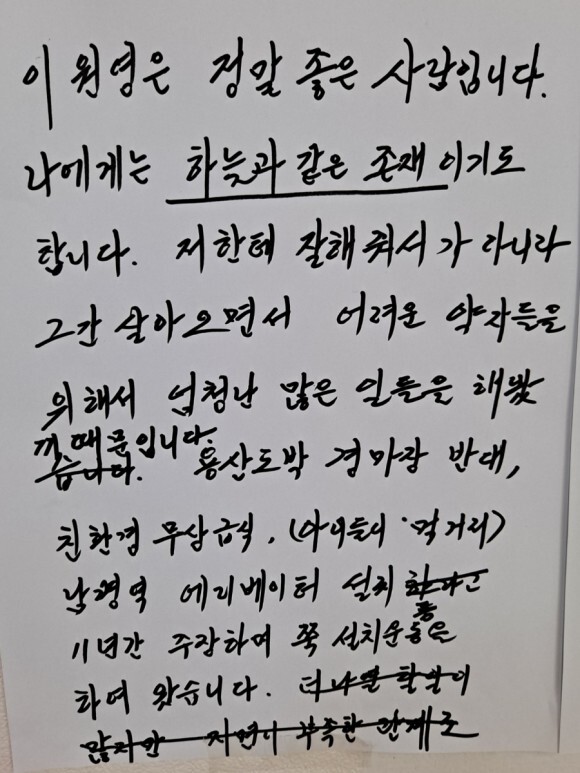 이원영은 정말 좋은 사람입니다.
나에게는 하늣과 같은 존재이기도
합니다. 저한테 잘해줘서가 아니라
그간 살아오면서 어려운 약자들을
위해서 엄청난 많은 일들을 해왔
기 때문입니다.
습니다. 용산도박 경마장 반대,
친환경 무상급식, (아이들의 먹거리)
남영역 에리베이터 설치
11년간 주장하며 쭉 설치운동을
하여 왔습니다. 더 나열 할말이
많지만 지면이 부족한 관계로